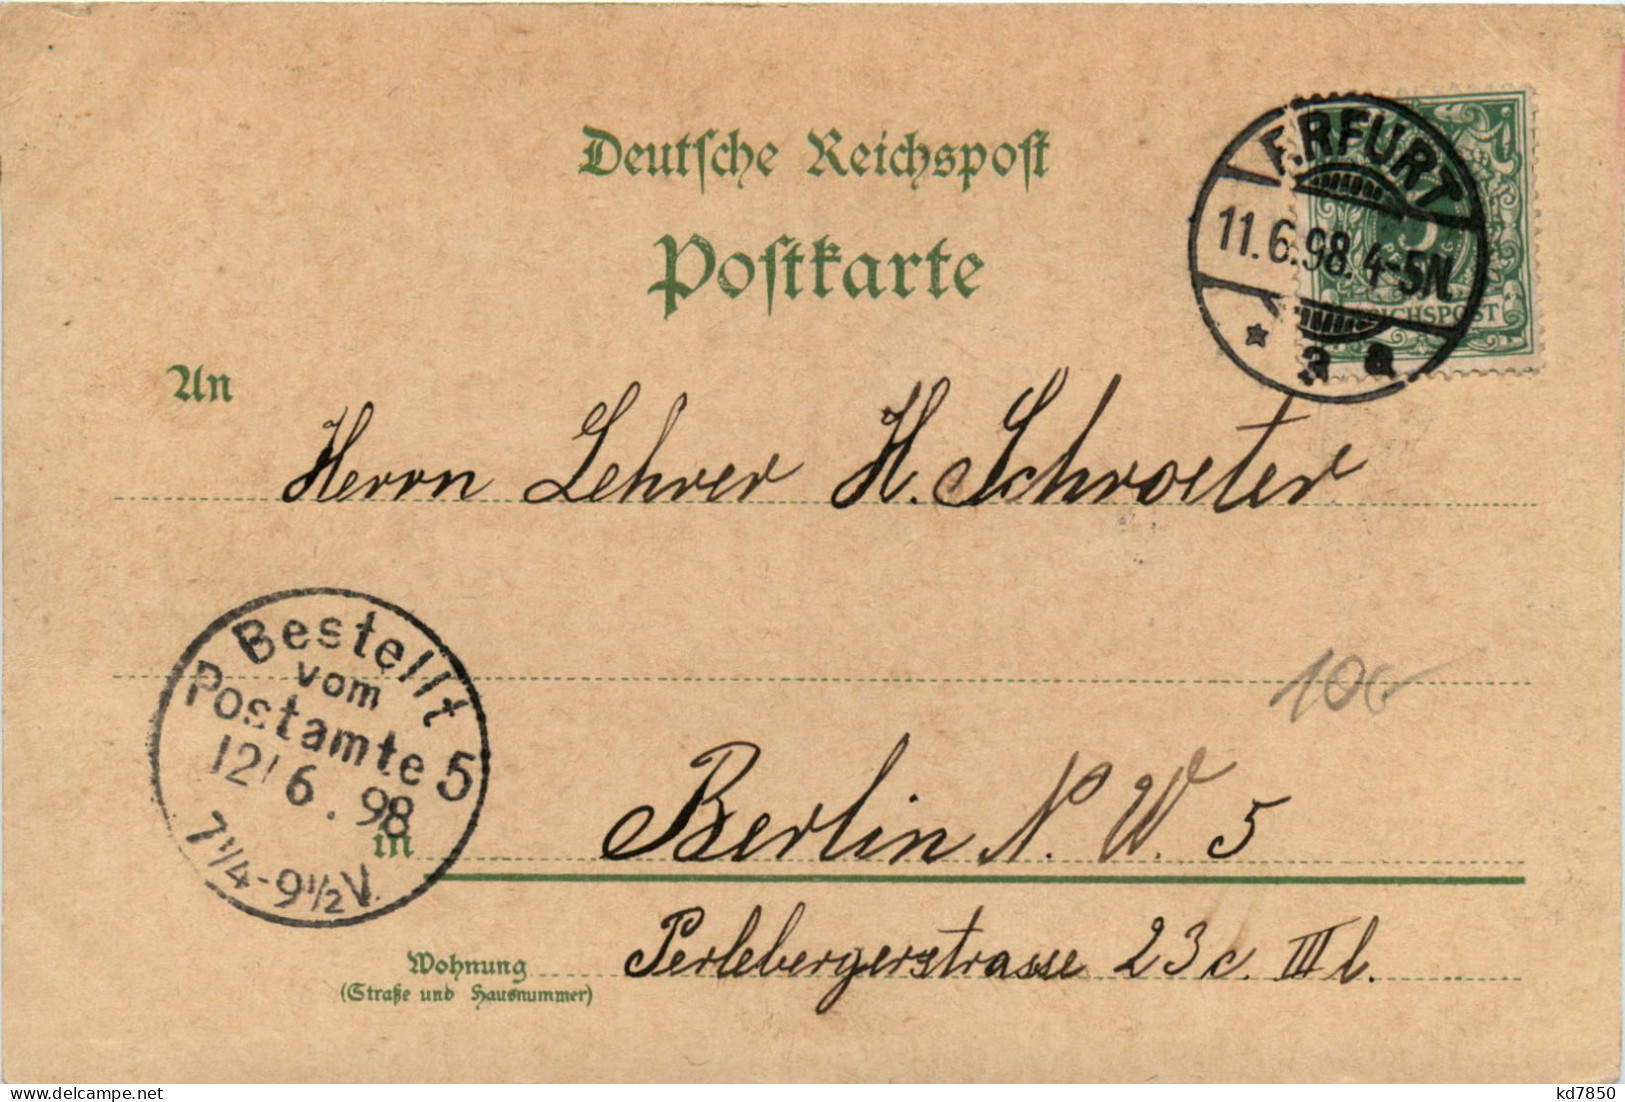 Deutsche Reichspost
Postkarte
ERFURT
11.6.98.4-5N.
* a a
5
REICHSPOST
An
Herrn Lehrer H. Schroeter
Bestellt
vom
Postamte 5
12/6.98
7 1/4-9 1/2 V.
in
Berlin N. W. 5
Wohnung
(Straße und Hausnummer)
Perlebergerstrasse 23 c. III l.
delcampe.net
kd7850